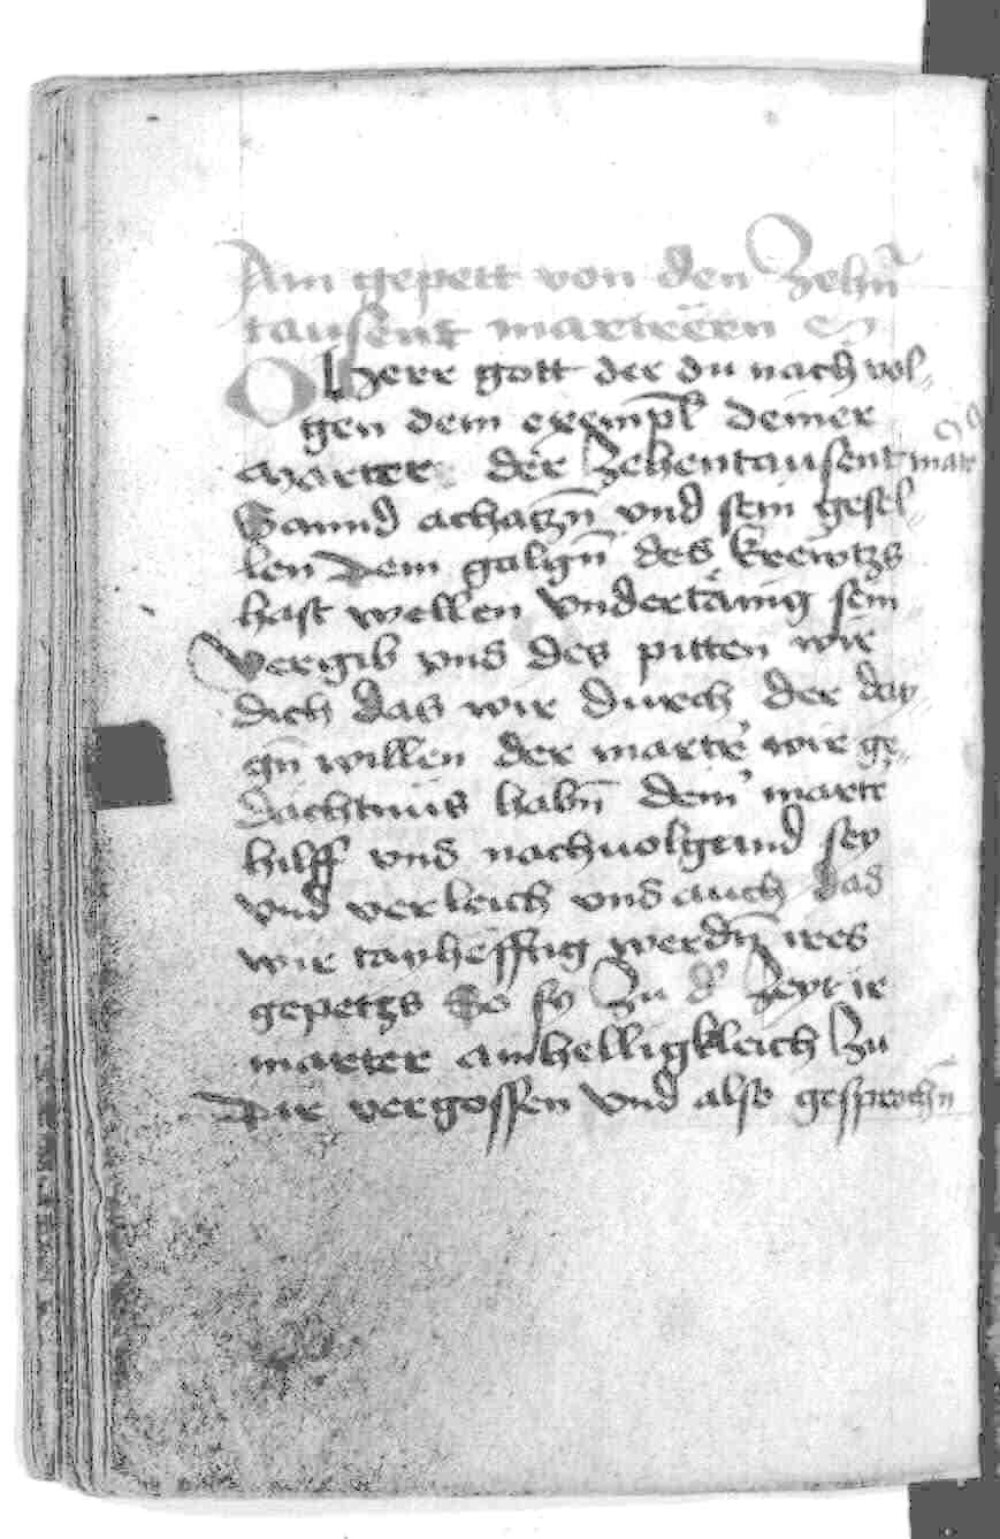 Ain gepett von den Zehn̄
tausent martrērn
O herr gott der du nach vol-
gen dem exempl̄ deiner
marter der Zehentausent mar
Sannd achaczn̄ vnd sein gesel-
len dem galign̄ des krewtzs
hast wellen vndertänig sein
vergib vns des pitten wir
dich das wir durch der
gn̄ willen der martrer wir ge-
dächtnüs habn̄ dein martr
hilff vns nachuolgeund sey
vnd verleich vns auch das
wir tayhefftig werdn̄ ires
gepetzs So sy Zu d' Zeyt ir
marter ainhelligkleich Zu
dir vergossen vnd also gesprochn̄